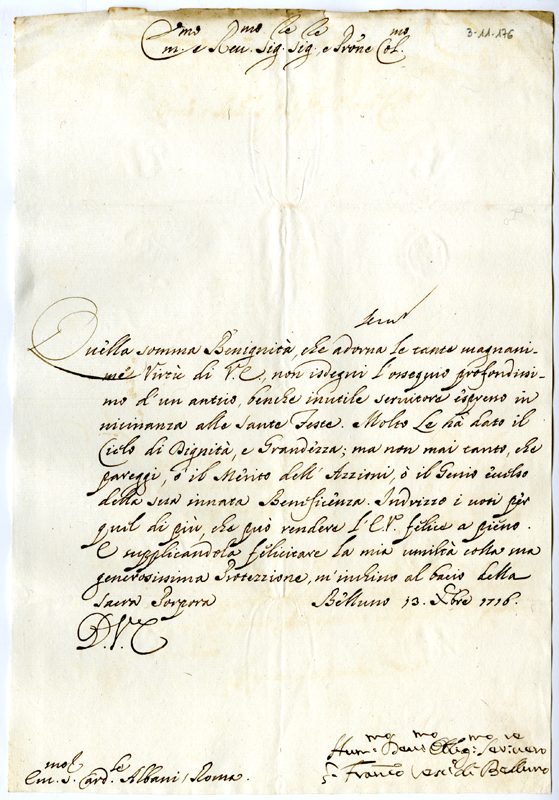 3-11-176
Em.mo e Reu.mo Sig.re Sig.re, e Prōne Col.mo
Quella somma Benignità, che adorna le tante magnani-
me Virtù di V.E., non isdegni l'ossequio profondissi-
mo d'un antico, benche inutile servitore espresso in
vicinanza alle Sante Feste. Molto Le hà dato il
Cielo di Dignità, e Grandezza; ma non mai tanto, che
pareggi, ò il Merito dell'Azzioni, ò il Genio eccelso
della sua innata Beneficenza. Indrizzo i voti per
quel di più, che può rendere l'E.V. felice a pieno.
E supplicandola felicitare la mia umiltà colla sua
generosissima Protezzione, m'inchino al bacio della
Sacra Porpora Belluno 13. Xbre 1716.
D.V.E.
Hum.mo Deu.mo Obbg.mo Servitore
Em.mo S. Card.le Albani, Roma.
F. Franc.o Vesc.o di Belluno